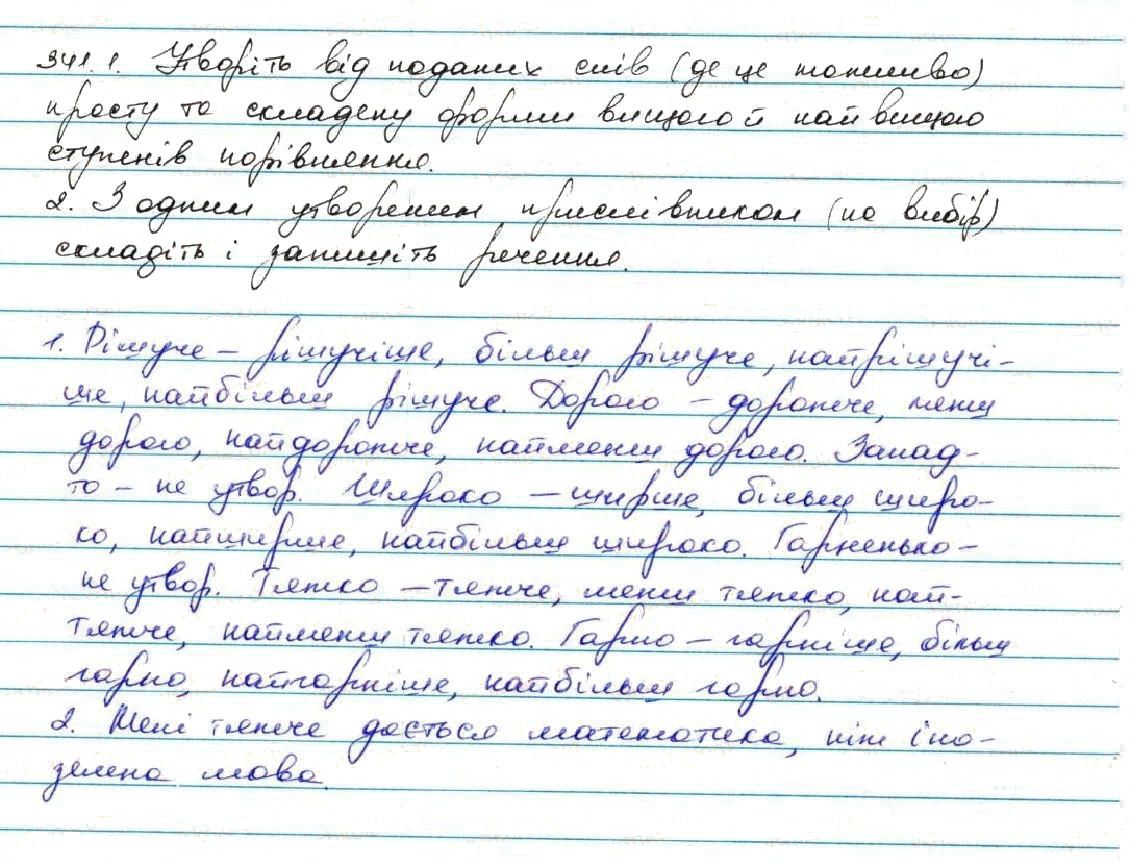 341.1. Утворіть від поданих слів (де це можливо)
просту та складену форми вищого й найвищого
ступенів порівняння.
2. З одним утвореним прислівником (на вибір)
складіть і запишіть речення.
1. Рішуче – рішучіше, більш рішуче, найрішучі-
ше, найбільш рішуче. Дорого – дорожче, менш
дорого, найдорожче, найменш дорого. Занад-
то – не утвор. Широко – ширше, більш широ-
ко, найширше, найбільш широко. Гарненько –
не утвор. Тяжко – тяжче, менш тяжко, най-
тяжче, найменш тяжко. Гарно – гарніше, більш
гарно, найгарніше, найбільш гарно.
2. Мені тяжче дається математика, ніж іно-
земна мова.